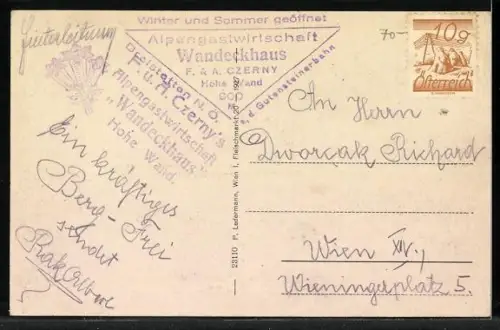 Winter und Sommer geöffnet
Alpengastwirtschaft
Wandeckhaus
F. & A. CZERNY
Hohe Wand
900 M
a. d. Gutensteinerbahn
N. Ö.
F. u. A. Czerny's
Alpengastwirtschaft
"Wandeckhaus"
Hohe Wand.
70-
10g
Österreich
Ein kräftiges
Berg-Frei
sendet
An Herrn
Dworcak Richard
Wien XV.,
Wieningerplatz 5.
23110 P. Ledermann, Wien I, Fleischmarkt 1927